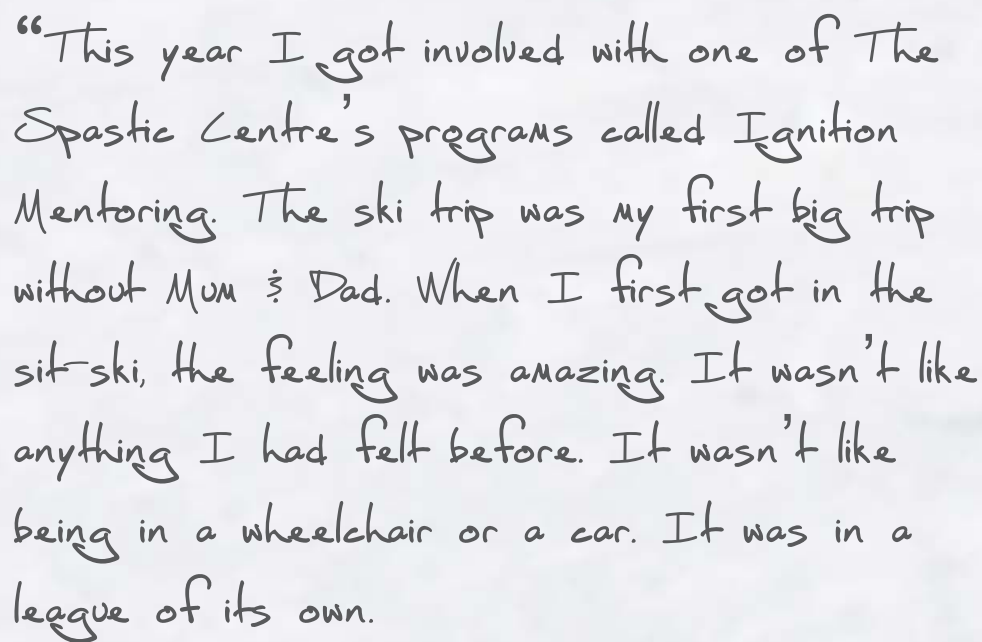 “This year I got involved with one of The
Spastic Centre’s programs called Ignition
Mentoring. The ski trip was my first big trip
without Mum & Dad. When I first got in the
sit-ski, the feeling was amazing. It wasn’t like
anything I had felt before. It wasn’t like
being in a wheelchair or a car. It was in a
league of its own.